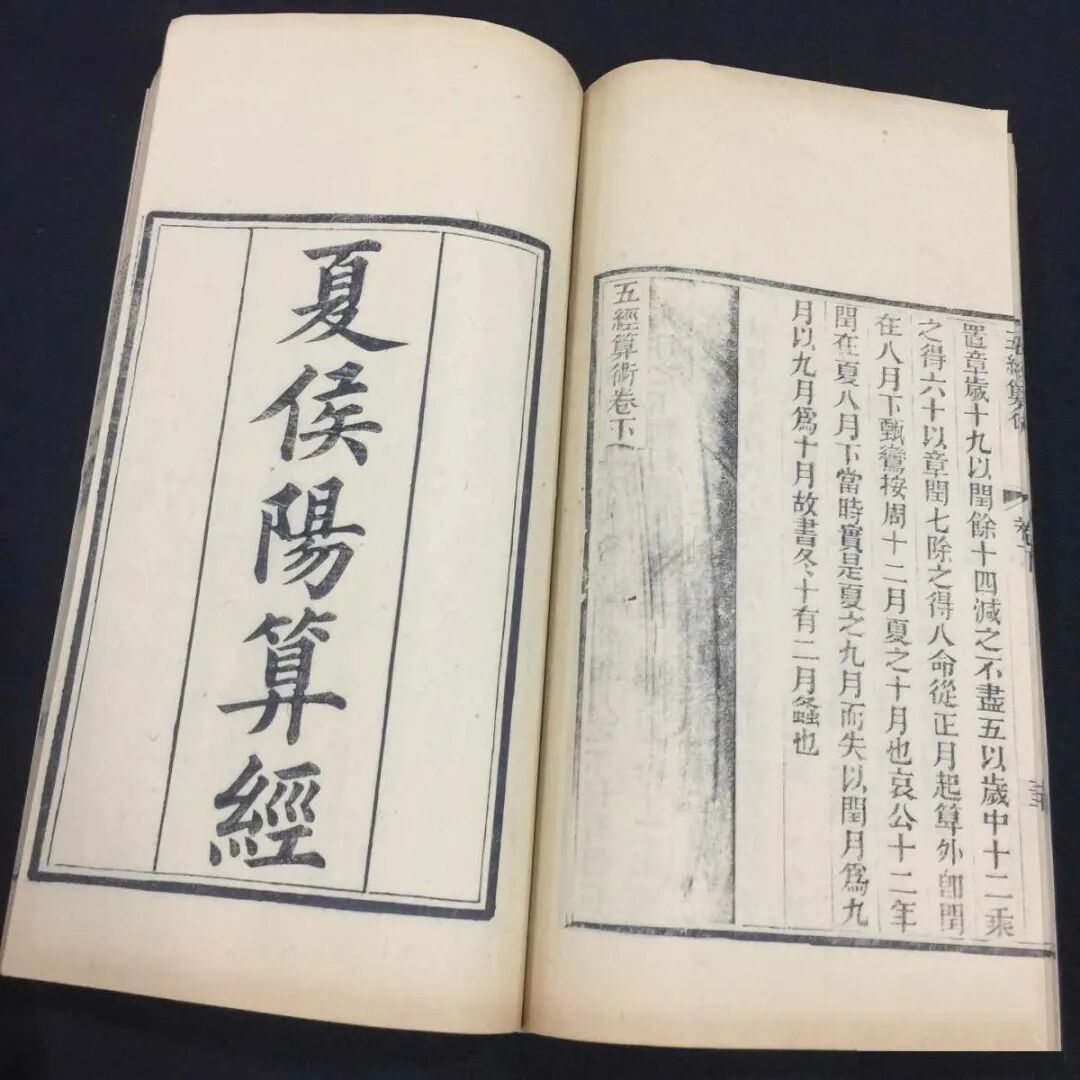 五經算術
卷下
置章歲十九以閏餘十四減之不盡五以歲中十二乘
之得六十以章閏七除之得八命從正月起算外卽閏
在八月下甄鸞按周十二月夏之十月也哀公十二年
閏在夏八月下當時實是夏之九月而失以閏月爲九
月以九月爲十月故書冬十有二月螽也
五經算術卷下
夏侯陽算經